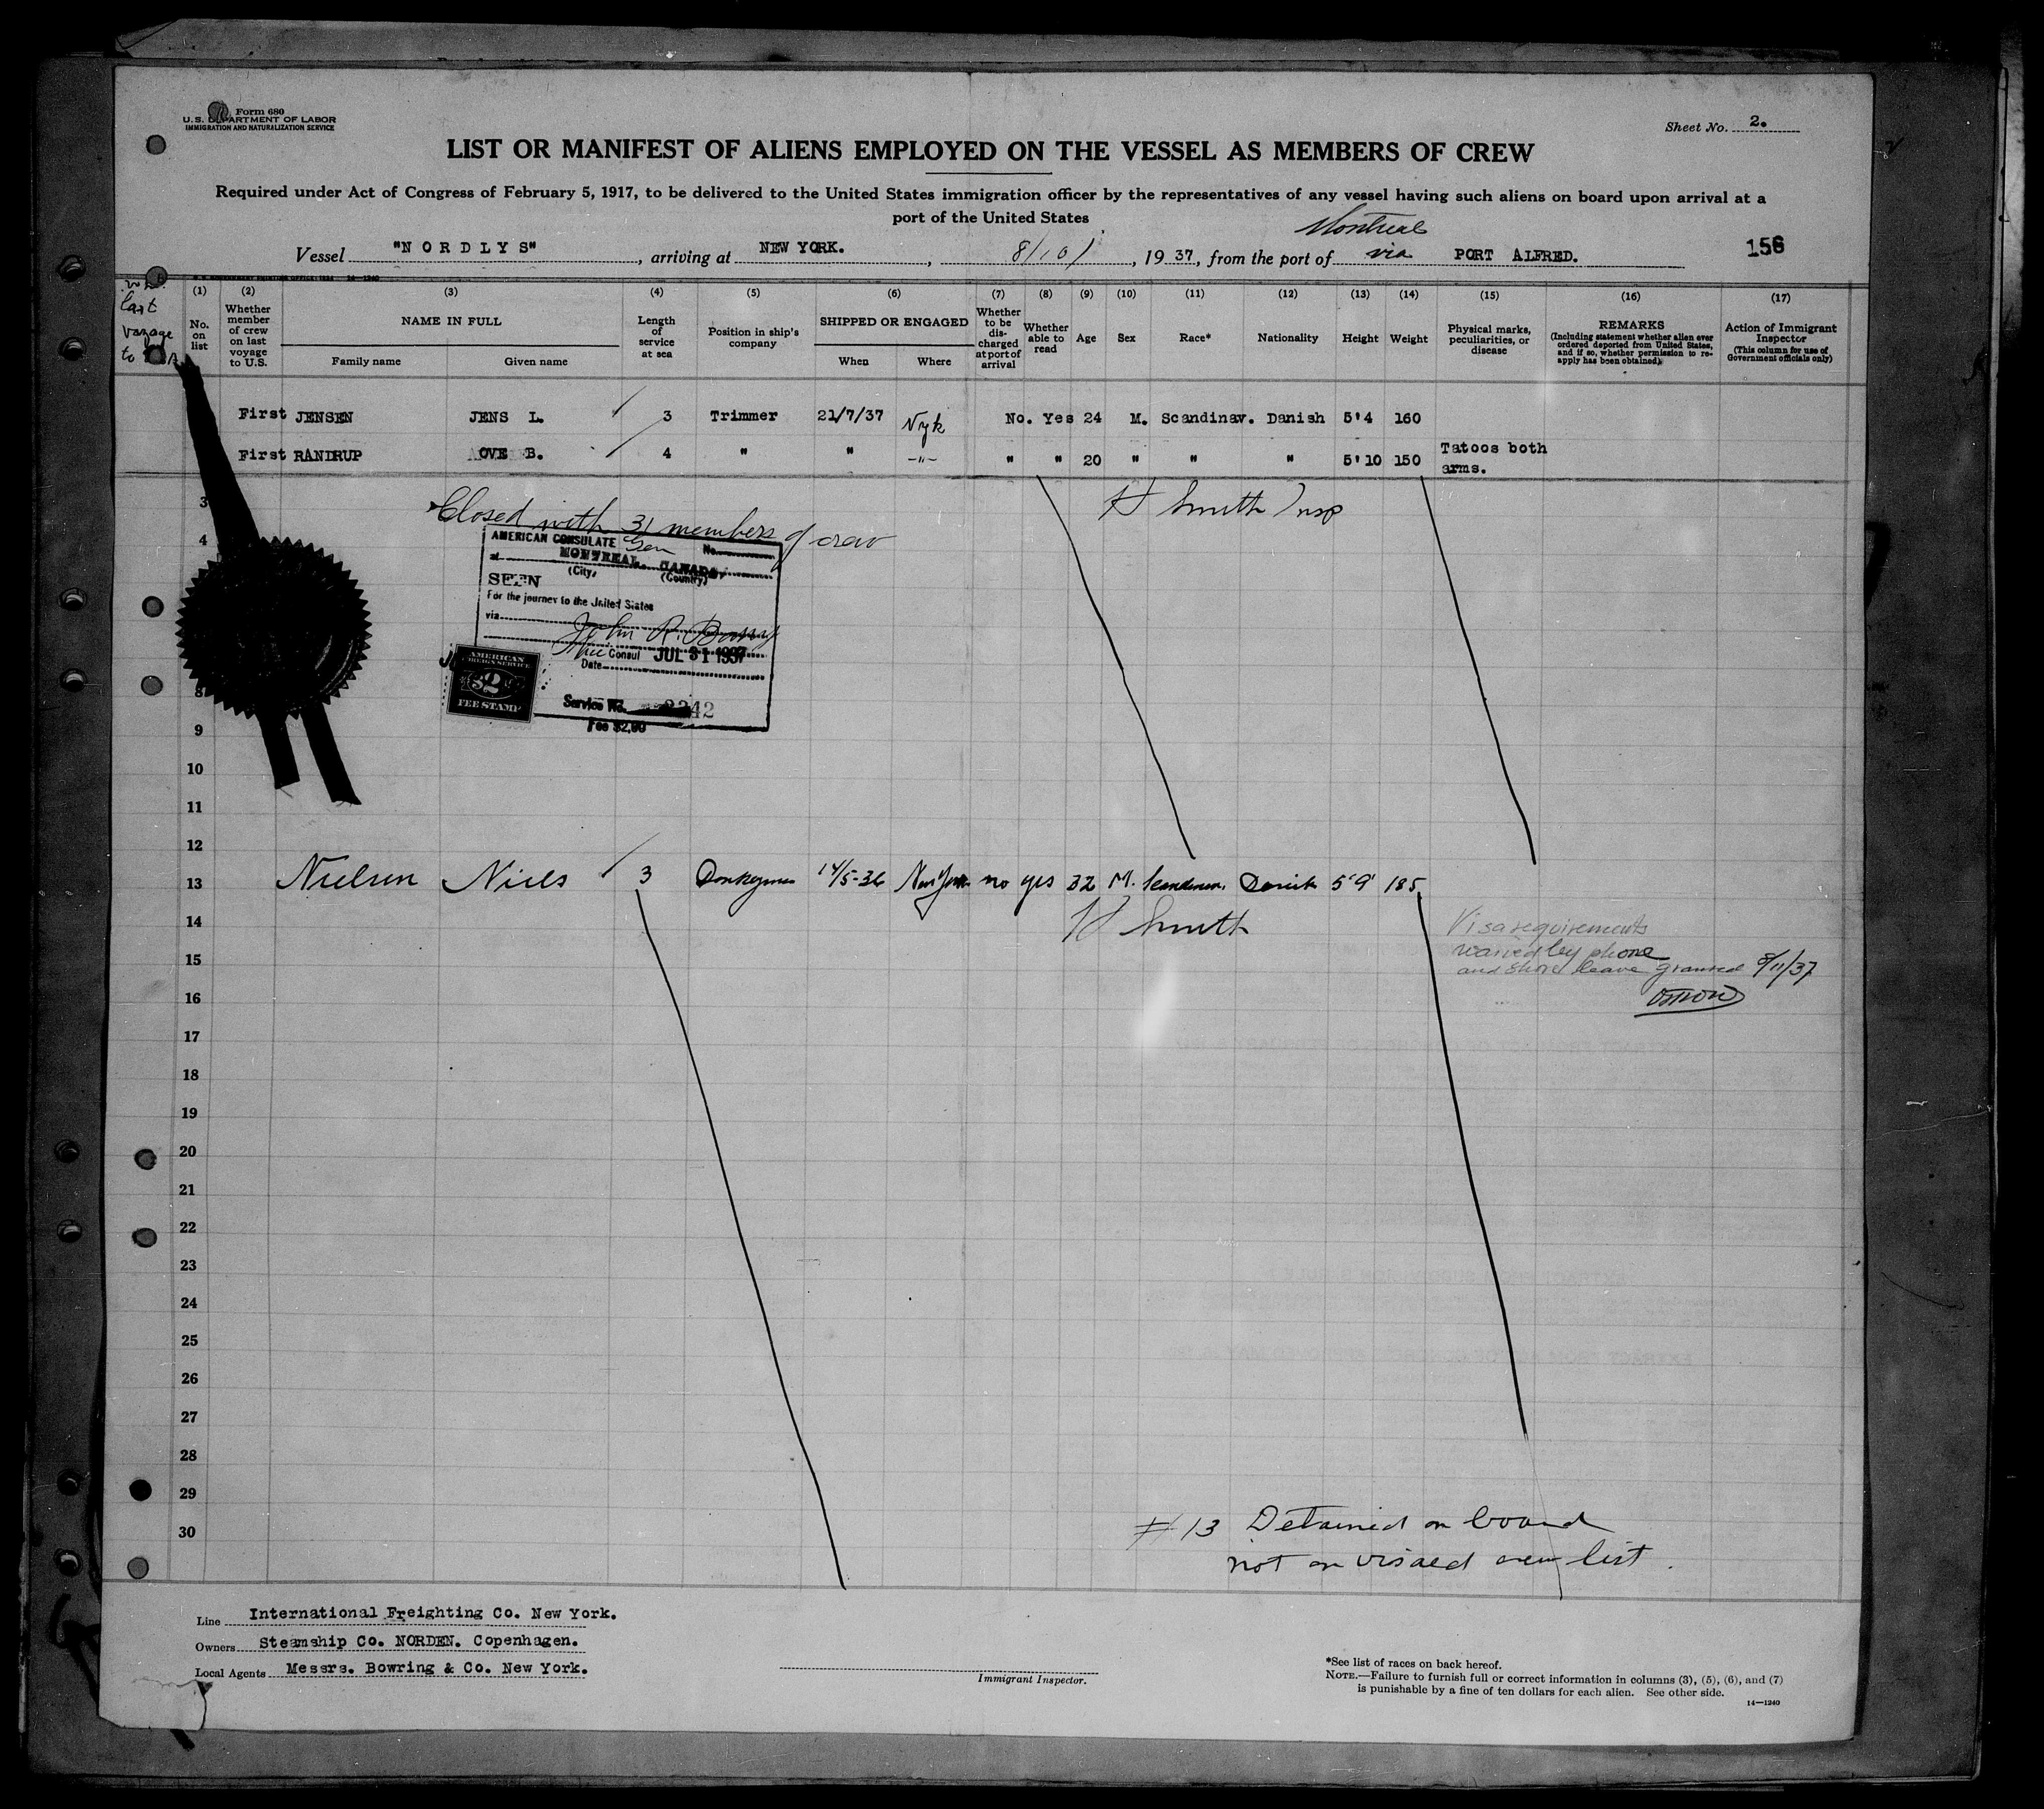 Form 680
U.S. DEPARTMENT OF LABOR
IMMIGRATION AND NATURALIZATION SERVICE
Sheet No. 2.
LIST OR MANIFEST OF ALIENS EMPLOYED ON THE VESSEL AS MEMBERS OF CREW
Required under Act of Congress of February 5, 1917, to be delivered to the United States immigration officer by the representatives of any vessel having such aliens on board upon arrival at a
port of the United States
Montreal
Vessel "NORDLYS", arriving at NEW YORK., 8/10/, 1937, from the port of via PORT ALFRED.
156
last
voyage
to
(1) (2) (3) (4) (5) (6) (7) (8) (9) (10) (11) (12) (13) (14) (15) (16) (17)
No. on list
Whether member of crew on last voyage to U.S.
NAME IN FULL
Family name Given name
Length of service at sea
Position in ship's company
SHIPPED OR ENGAGED
When Where
Whether to be discharged at port of arrival
Whether able to read
Age
Sex
Race*
Nationality
Height
Weight
Physical marks, peculiarities, or disease
REMARKS
(Including statement whether alien ever ordered deported from United States, and if so, whether permission to re-apply has been obtained)
Action of Immigrant Inspector
(This column for use of Government officials only)
First JENSEN JENS L. 3 Trimmer 21/7/37 Nyk No. Yes 24 M. Scandinav. Danish 5'4 160
First RANDRUP OVE B. 4 " " -"- " " 20 " " " 5'10 150 Tatoos both
arms.
3
Closed with 31 members of crew
H Smith Insp
4
AMERICAN CONSULATE Gen No.
at MONTREAL, CANADA
(City, (Country)
SEEN
For the journey to the United States
via
John R.
Vice Consul JUL 31 1937
Date
AMERICAN
FOREIGN SERVICE
$2
FEE STAMP
Service No. 42
Fee $2.00
8
9
10
11
12
13 Nielsen Niels 3 Donkeyman 14/5-36 New York no yes 32 M. Scandinav. Danish 5'9' 185
14
H Smith
Visa requirements
waived by phone
and shore leave granted 8/11/37
15
16
17
18
19
20
21
22
23
24
25
26
27
28
29
30
#13 Detained on board
not on visaed crew list.
Line International Freighting Co. New York.
Owners Steamship Co. NORDEN. Copenhagen.
Local Agents Messrs. Bowring & Co. New York.
Immigrant Inspector.
*See list of races on back hereof.
NOTE.—Failure to furnish full or correct information in columns (3), (5), (6), and (7)
is punishable by a fine of ten dollars for each alien. See other side.
14—1240